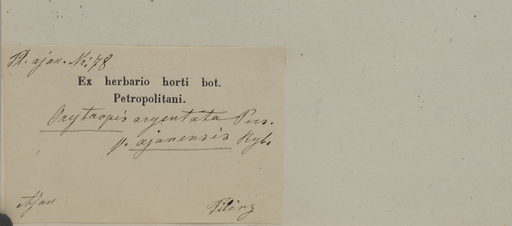 Fl. ajan. No. 78
Ex herbario horti bot.
Petropolitani.
Oxytropis argentata Pers.
β. ajanensis Rgl.
Ajan Tiling